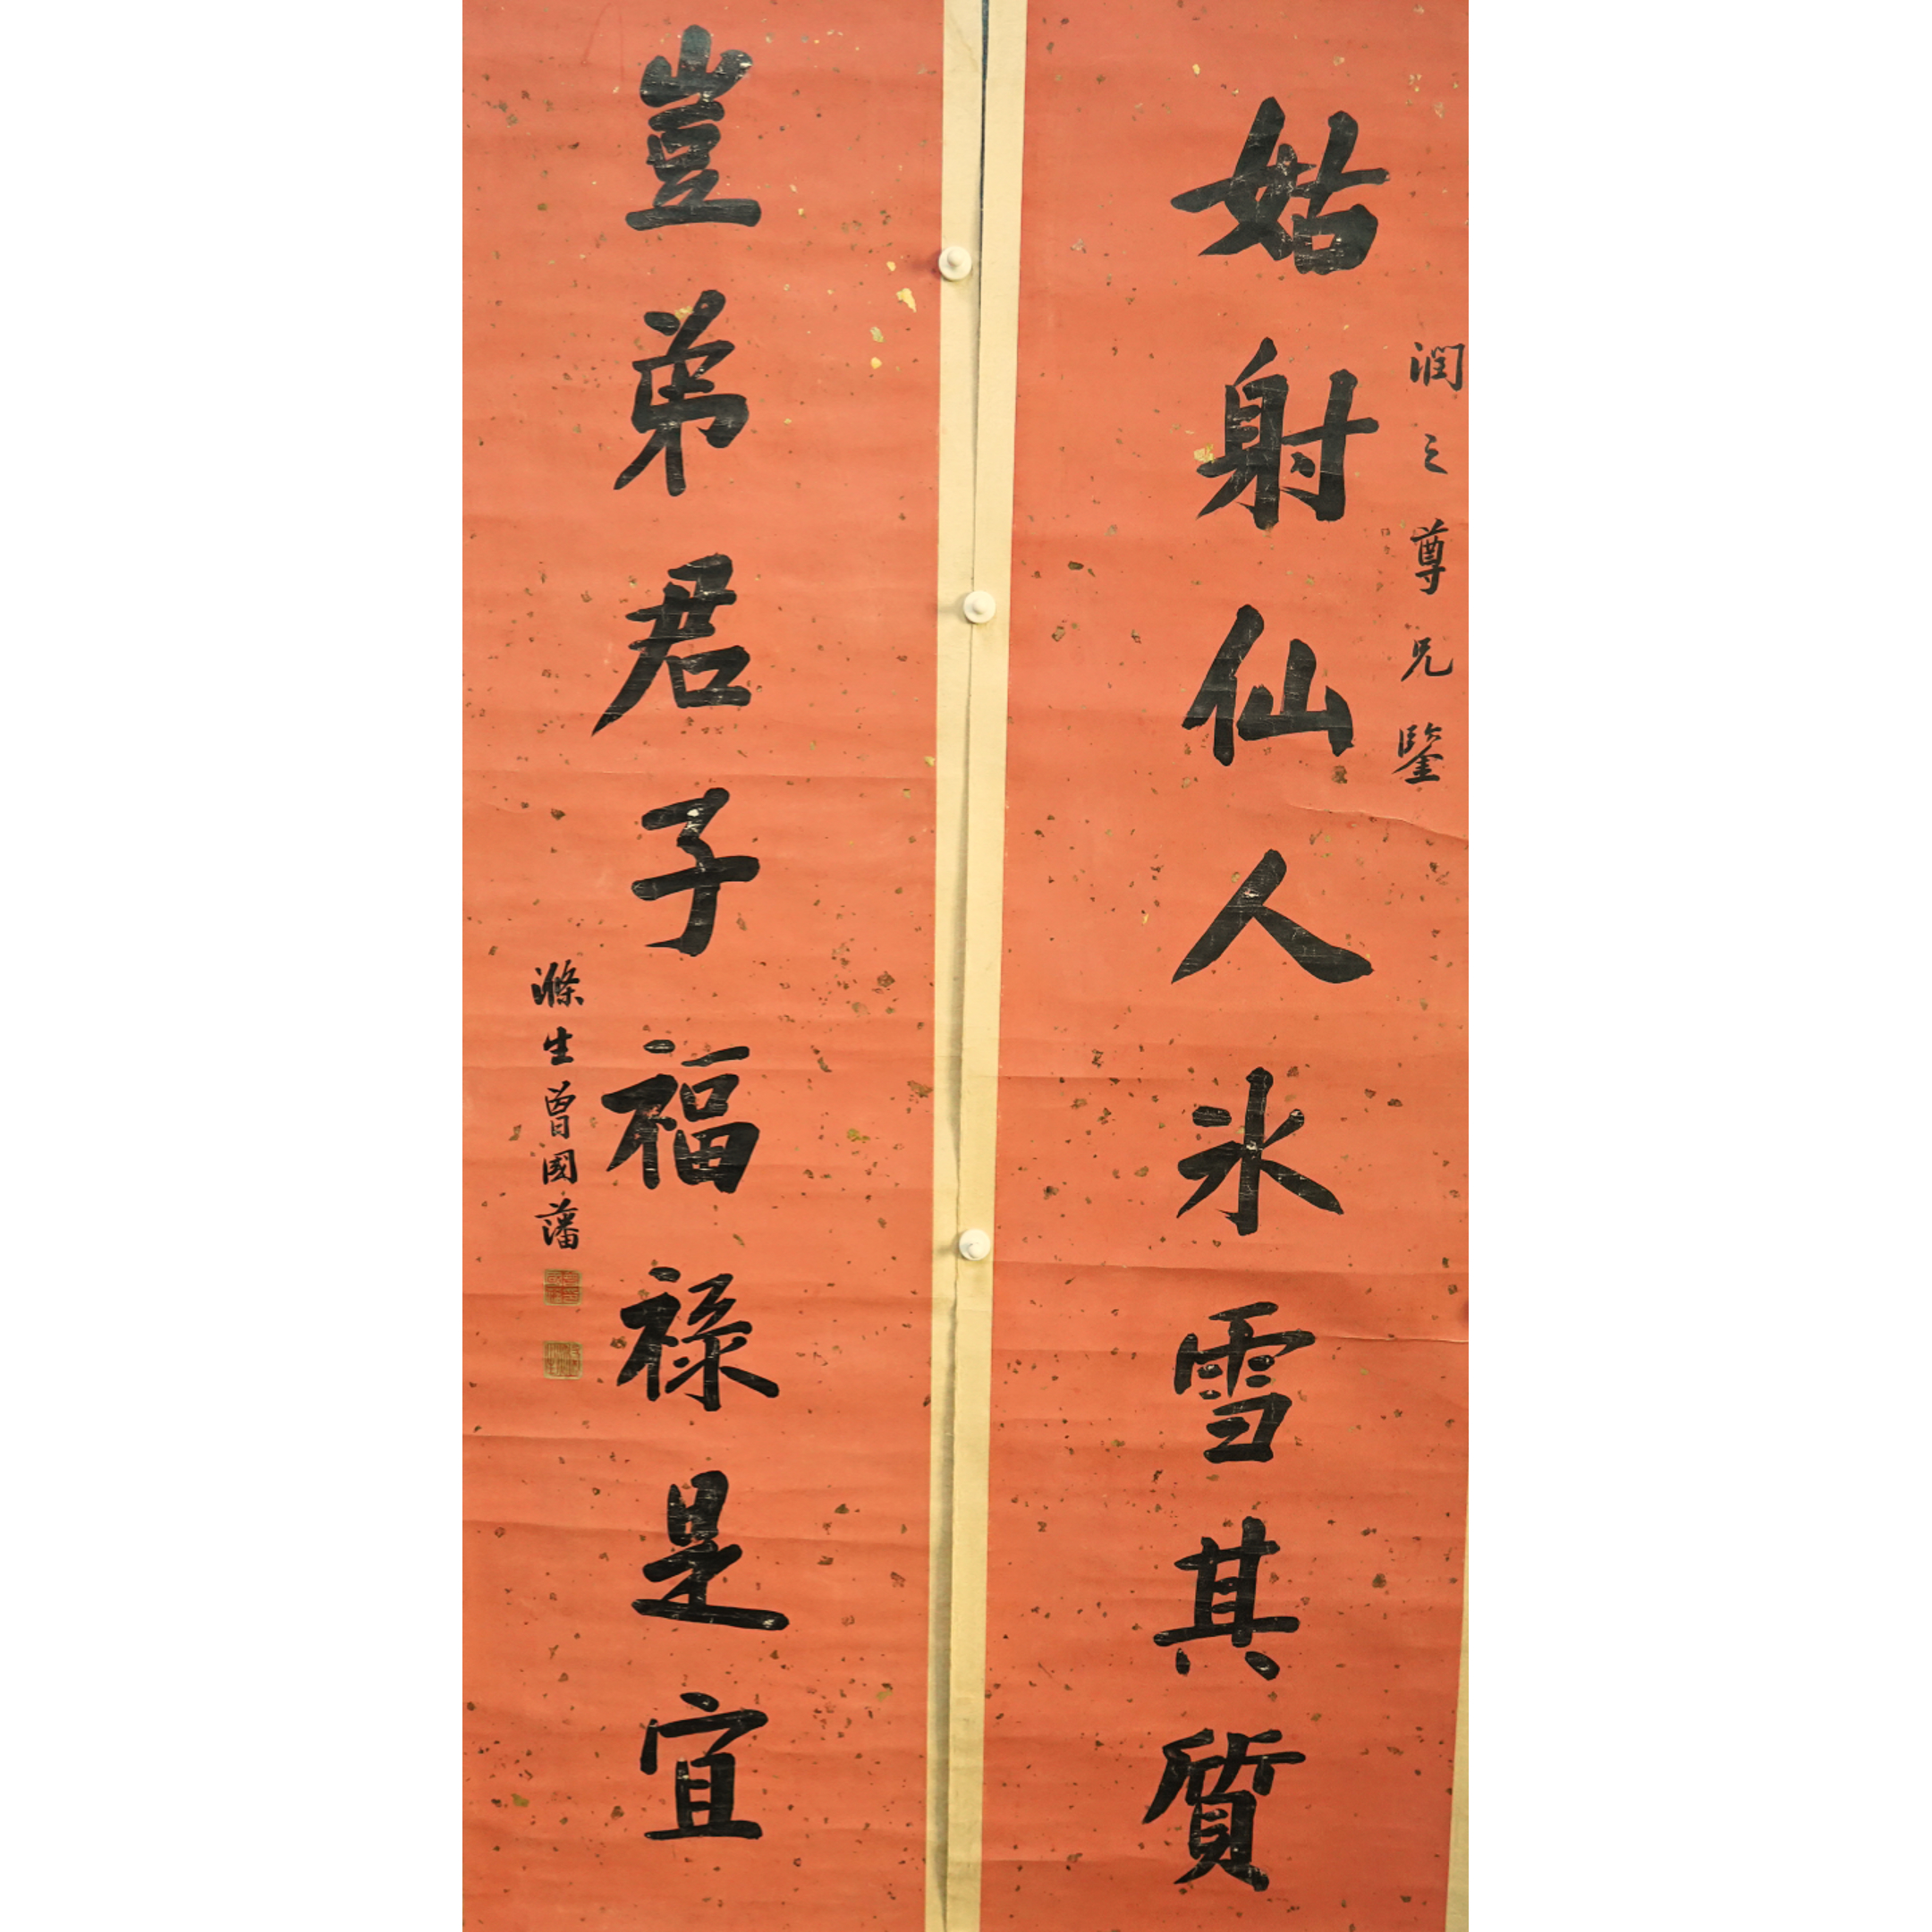 潤之尊兄鑒
姑射仙人氷雪其質
豈弟君子福禄是宜
滌生曾國藩